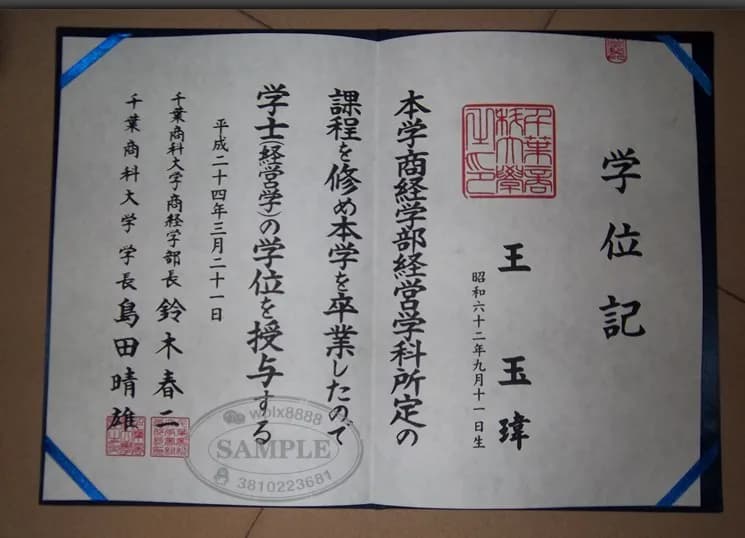 学位記
王玉瑋
昭和六十二年九月十一日生
本学商経学部経営学科所定の
課程を修め本学を卒業したので
学士(経営学)の学位を授与する
平成二十四年三月二十一日
千葉商科大学商経学部長 鈴木春二
千葉商科大学 学長 島田晴雄
wblx8888
SAMPLE
3810223681